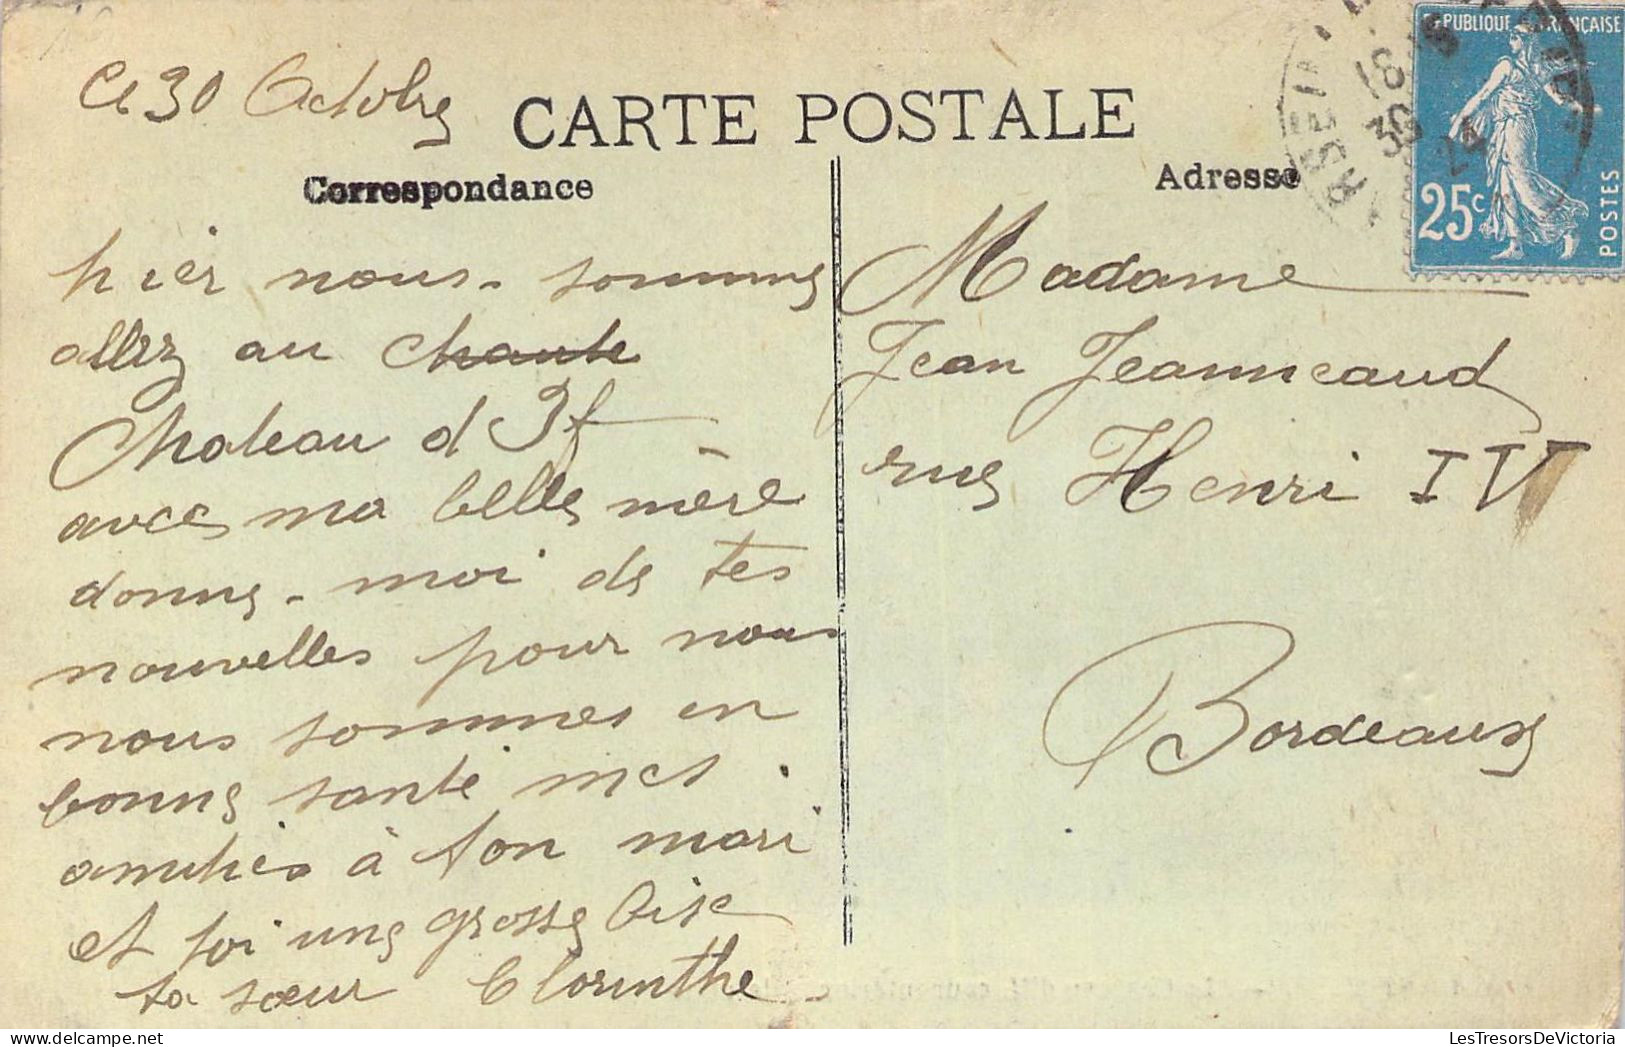 Ce 30 Octobre
CARTE POSTALE
Correspondance
Adresse
RÉPUBLIQUE FRANÇAISE
25c
POSTES
18
30
24
hier nous - sommes
allez au chaute
Chateau d If
avec ma belle mère
donne - moi de tes
nouvelles pour nous
nous sommes en
bonne santé mes
amitiés à ton mari
et toi une grosse bise
ta sœur Clorinthe
Madame
Jean Jeanneaud
rue Henri IV
Bordeaux
LesTresorsDeVictoria